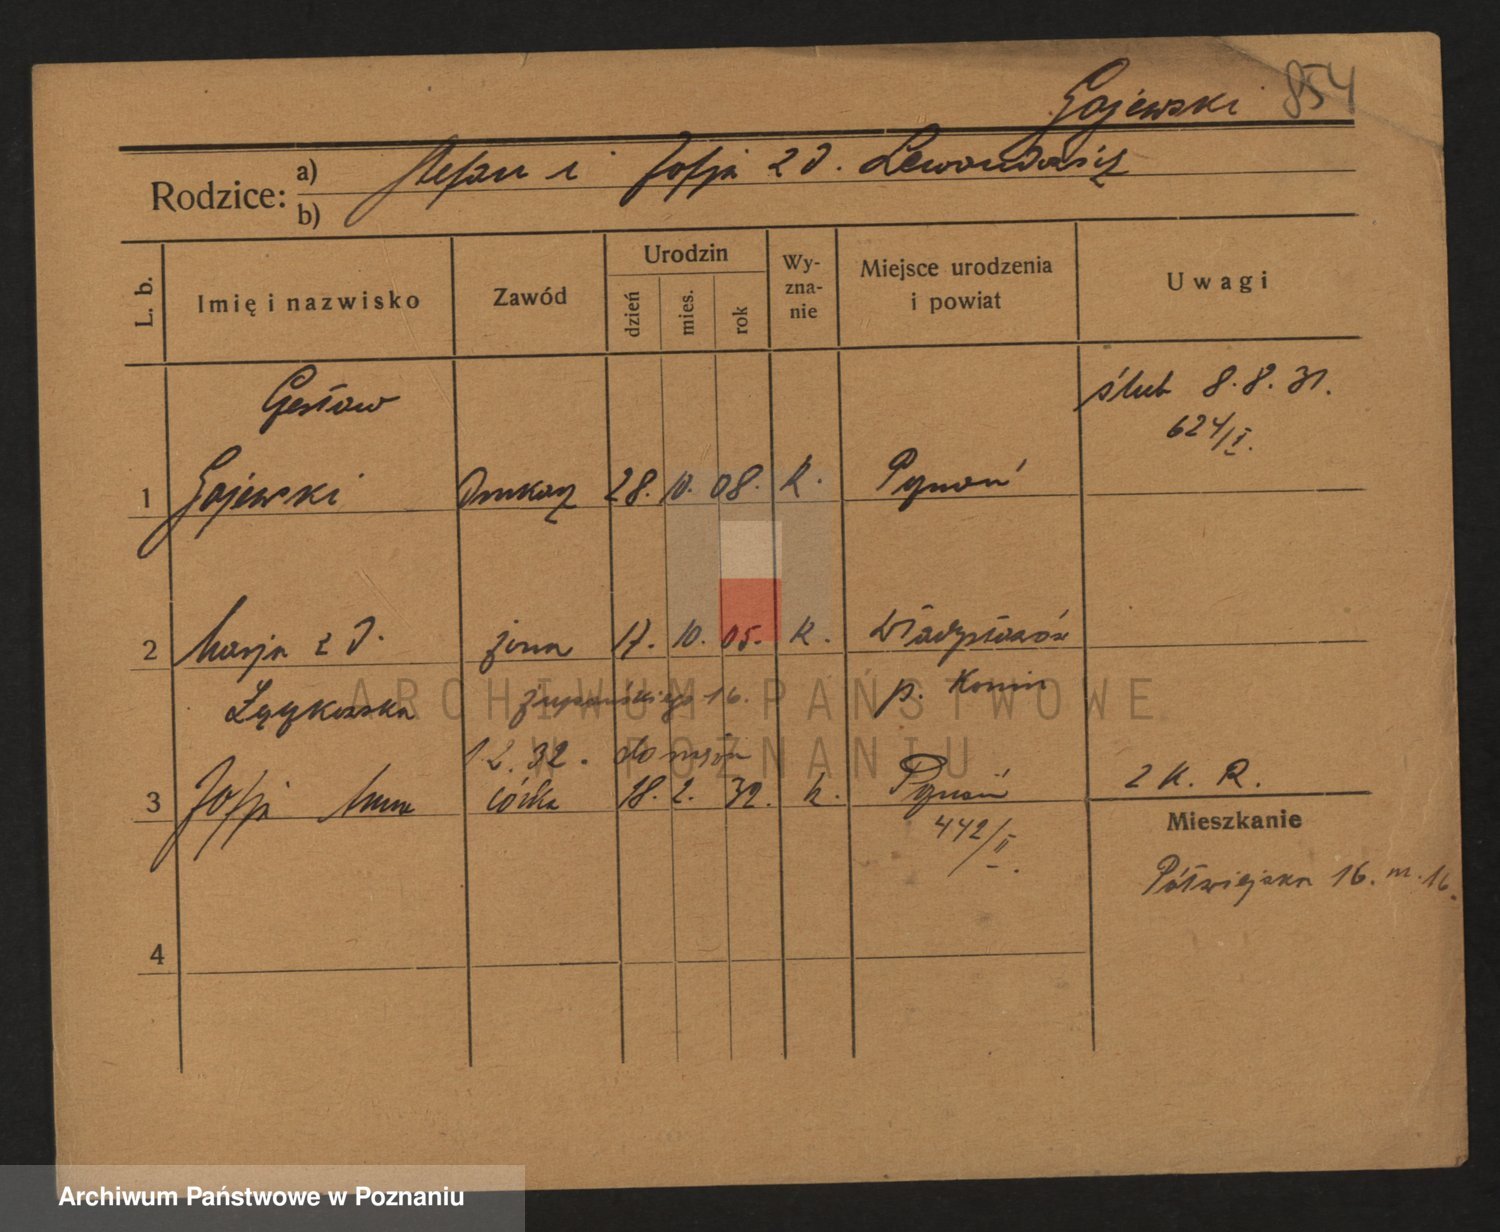 Gajewski 854
Rodzice: a) Stefan i Zofja z d. Lewandowicz
b)
L. b. Imię i nazwisko Zawód Urodzin dzień mies. rok Wyznanie Miejsce urodzenia i powiat Uwagi
Czesław ślub 8.8.31.
624/I.
1 Gajewski Drukarz 28. 10. 08. k. Poznań
2 Marja z d. żona 17. 10. 05. k. Władysławów
Żupańskiego 16. p. Konin
1 2. 32.
3 Zofja Anna córka 18. 2. 32. k. Poznań 2 K. R.
442/II.
Mieszkanie
Półwiejska 16. m. 16.
4
ARCHIWUM PAŃSTWOWE
W POZNANIU
Archiwum Państwowe w Poznaniu